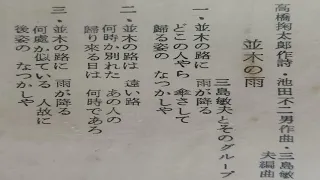 高橋掬太郎作詩・池田不二男作曲・三島敏夫編曲
並木の雨
三島敏夫とそのグループ
一、並木の路に 雨が降る
どこの人やら 傘さして
帰る姿の なつかしや
二、並木の路は 遠い路
何時か別れた あの人の
帰り來る日は 何時であろ
三、並木の路に 雨が降る
何處か似ている 人故に
後姿の なつかしや